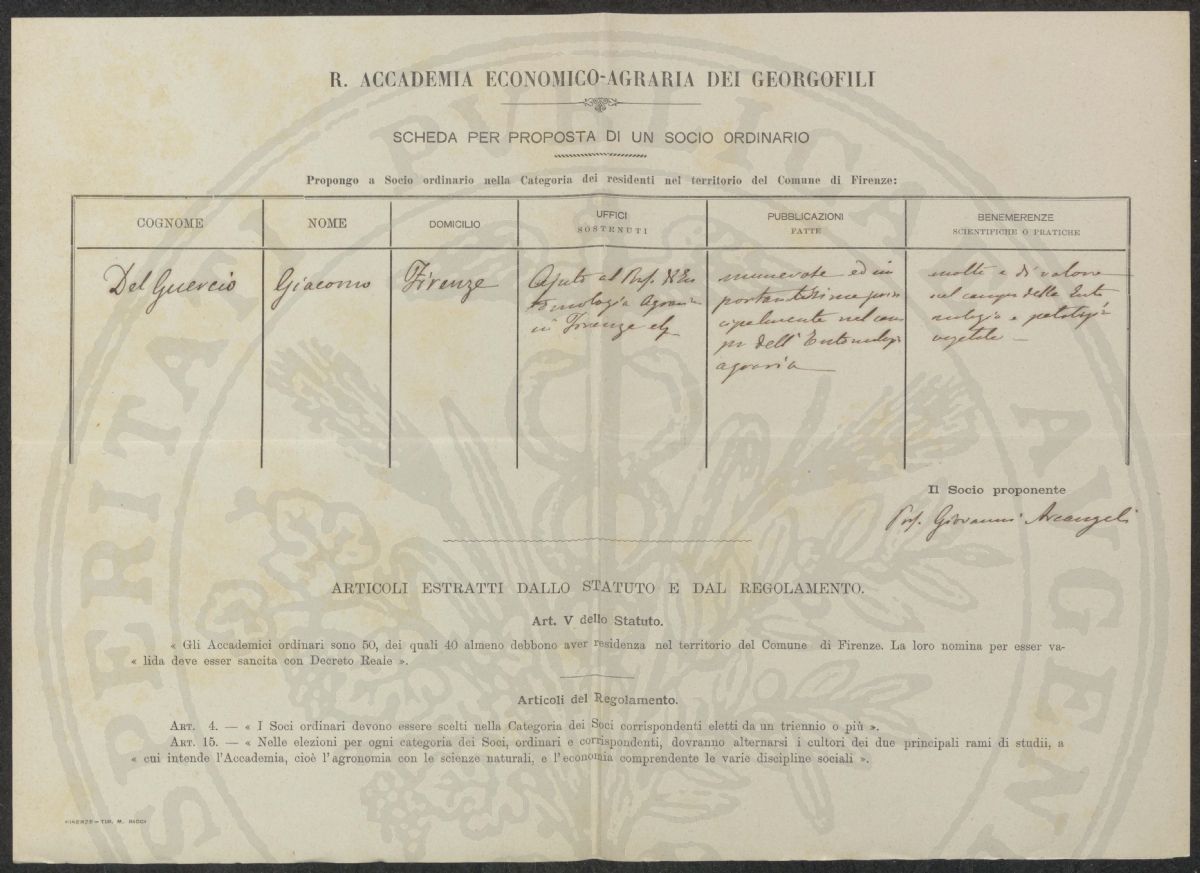 R. ACCADEMIA ECONOMICO-AGRARIA DEI GEORGOFILI
SCHEDA PER PROPOSTA DI UN SOCIO ORDINARIO
Propongo a Socio ordinario nella Categoria dei residenti nel territorio del Comune di Firenze:
COGNOME
NOME
DOMICILIO
UFFICI
SOSTENUTI
PUBBLICAZIONI
FATTE
BENEMERENZE
SCIENTIFICHE O PRATICHE
Del Guercio
Giacomo
Firenze
Ajuto al Prof. di En
tomologia Agraria
in Firenze
numerose ed im
portantissime prin
cipalmente nel cam
po dell'Entomologia
agraria
molte e di valore
nel campo della Ento
mologia e patologia
vegetale
Il Socio proponente
Prof. Giovanni Arcangeli
ARTICOLI ESTRATTI DALLO STATUTO E DAL REGOLAMENTO.
Art. V dello Statuto.
« Gli Accademici ordinari sono 50, dei quali 40 almeno debbono aver residenza nel territorio del Comune di Firenze. La loro nomina per esser va-
« lida deve esser sancita con Decreto Reale ».
Articoli del Regolamento.
ART. 4. — « I Soci ordinari devono essere scelti nella Categoria dei Soci corrispondenti eletti da un triennio o più ».
ART. 15. — « Nelle elezioni per ogni categoria dei Soci, ordinari e corrispondenti, dovranno alternarsi i cultori dei due principali rami di studii, a
« cui intende l'Accademia, cioè l'agronomia con le scienze naturali, e l'economia comprendente le varie discipline sociali ».
FIRENZE — TIP. M. RICCI
PROSPERITATI PUBLICAE AUGENDAE